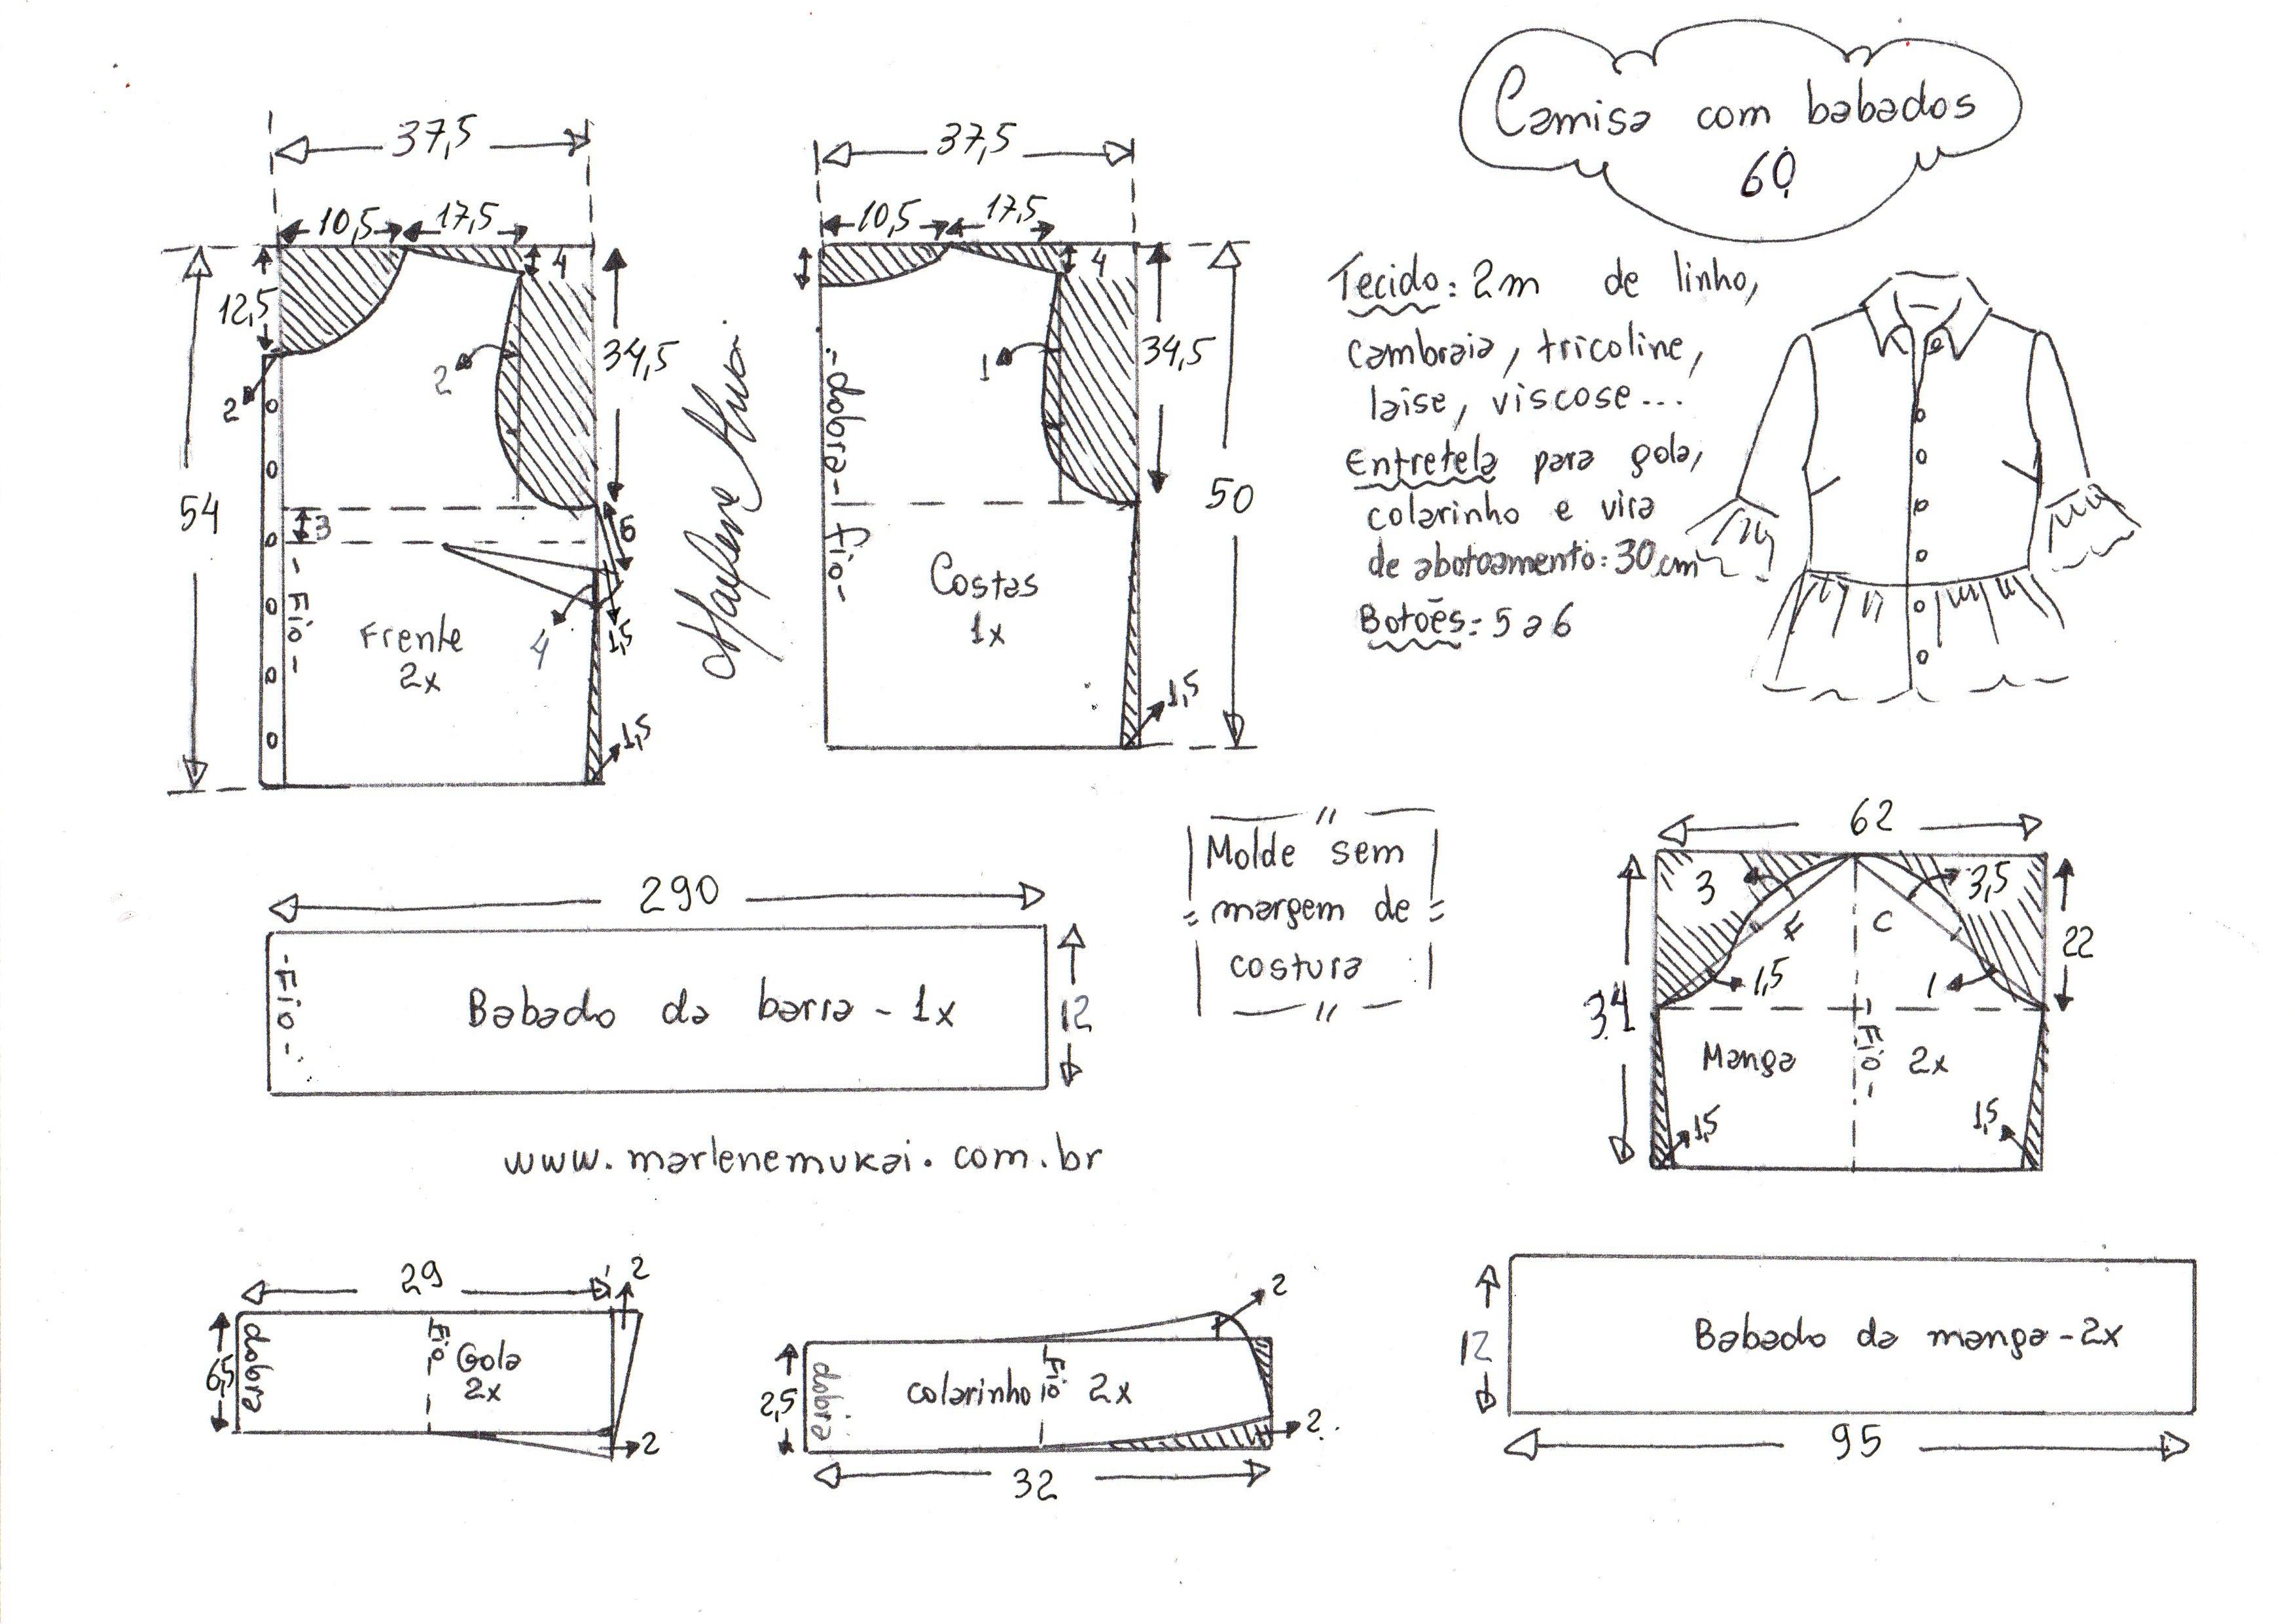 Camisa com babados
60
37,5
10,5
17,5
4
12,5
2
2
34,5
54
3
6
- Fio -
Frente
2x
4
1,5
1,5
Marlene Mukai
37,5
10,5
17,5
4
1
34,5
- dobra - fio -
50
Costas
1x
1,5
Tecido: 2m de linho,
cambraia, tricoline,
laise, viscose...
Entretela para gola,
colarinho e vira
de abotoamento: 30 cm
Botões: 5 a 6
290
- Fio -
Babado da barra - 1x
12
Molde sem
margem de
costura
62
3
3,5
F
C
1,5
1
22
34
Manga
- Fio -
2x
1,5
1,5
www.marlenemukai.com.br
29
2
6,5
dobra
Fio
Gola
2x
2
2
2,5
dobra
colarinho
Fio
2x
2
32
12
Babado da manga - 2x
95